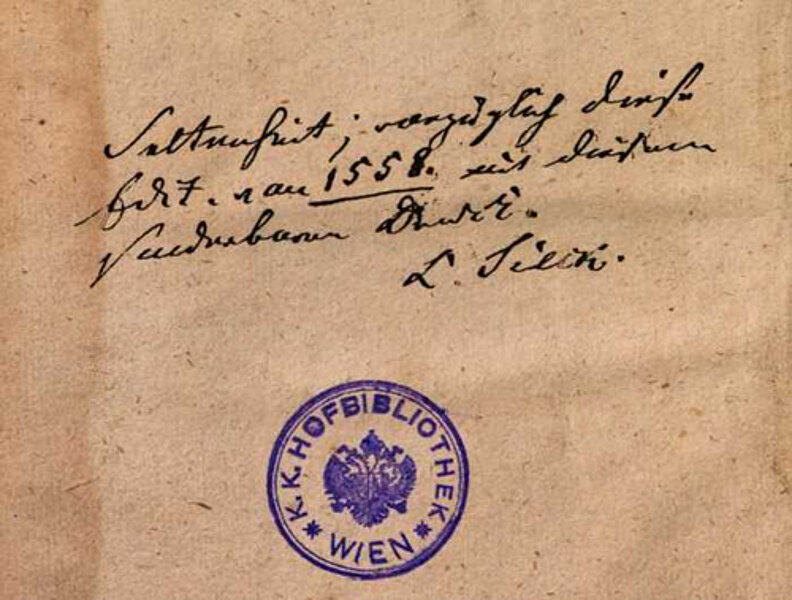 Seltenheit; vorzüglich diese
Edit. von 1558. mit diesem
sonderbaren Druck.
K. K. HOFBIBLIOTHEK
* WIEN *